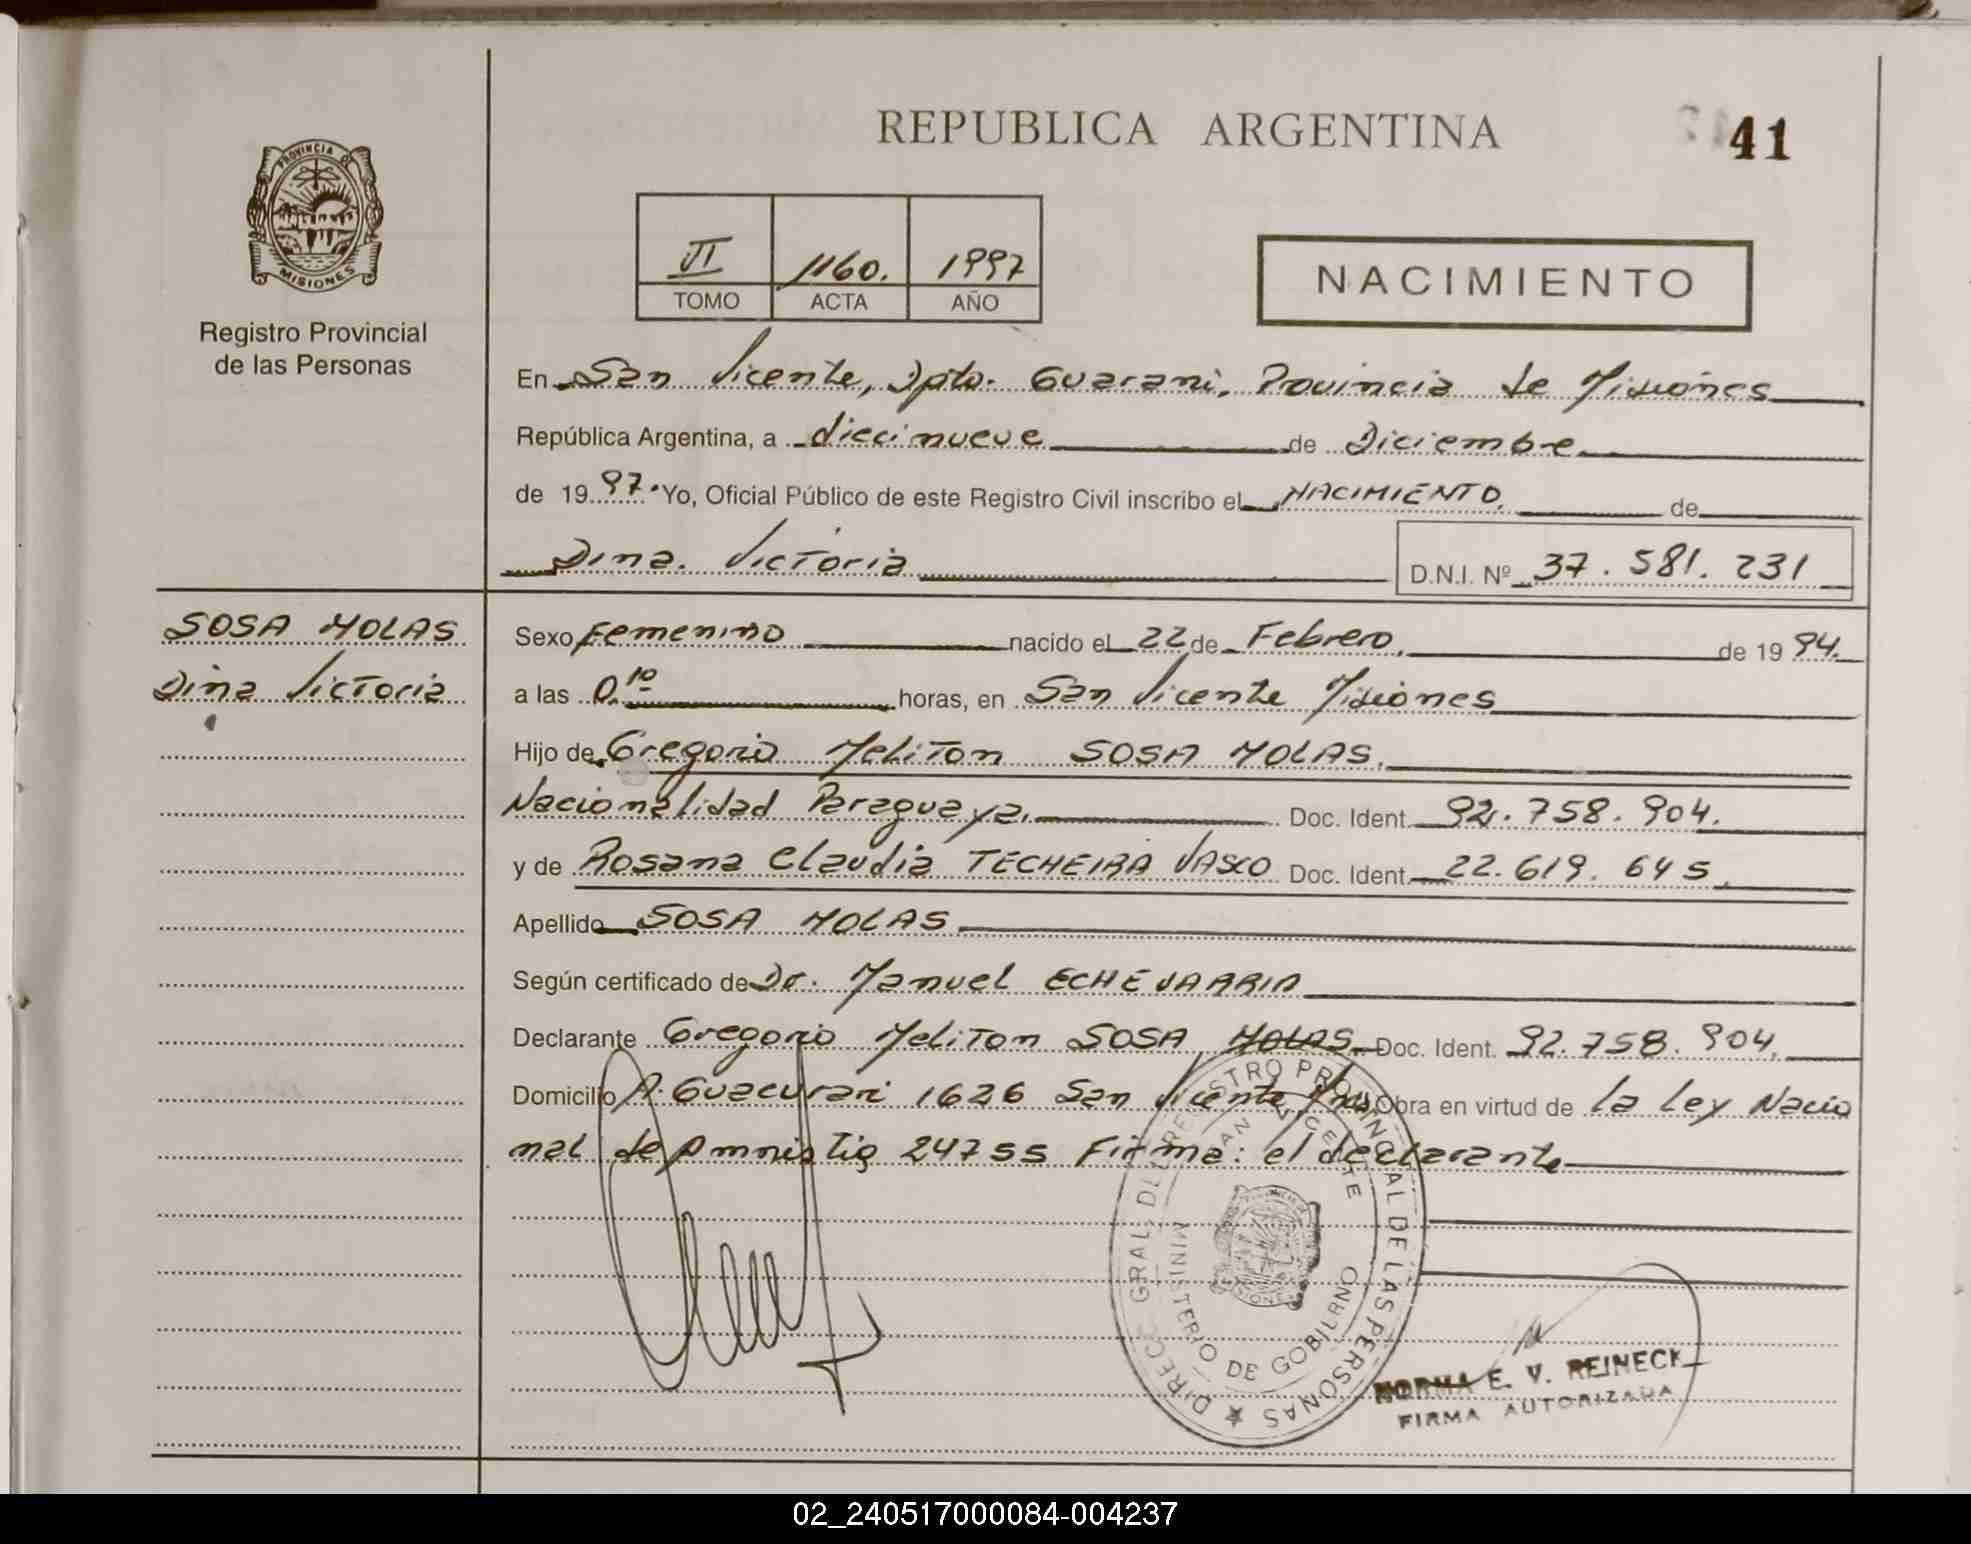 REPUBLICA ARGENTINA
41
PROVINCIA DE
MISIONES
Registro Provincial
de las Personas
VI 1160. 1997
TOMO ACTA AÑO
NACIMIENTO
En San Vicente, Dpto. Guarani, Provincia de Misiones
República Argentina, a diecinueve de Diciembre
de 1997. Yo, Oficial Público de este Registro Civil inscribo el NACIMIENTO. de
Dina. Victoria D.N.I. Nº 37.581.231
SOSA MOLAS
Dina Victoria
Sexo Femenino nacido el 22 de Febrero. de 1994.
a las 0.10 horas, en San Vicente Misiones
Hijo de Gregorio Meliton SOSA MOLAS.
Nacionalidad Paraguaya. Doc. Ident. 92.758.904.
y de Rosana Claudia TECHEIRA VASCO Doc. Ident. 22.619.645.
Apellido SOSA MOLAS
Según certificado de Dr. Manuel ECHEVARRIA
Declarante Gregorio Meliton SOSA MOLAS Doc. Ident. 92.758.904.
Domicilio A. Guacurari 1626 San Vicente Mnes. Obra en virtud de la Ley Nacio
nal de Amnistia 24755 Firma: el declarante
DIRECC. GRAL. DEL REGISTRO PROVINCIAL DE LAS PERSONAS
SAN VICENTE
MINISTERIO DE GOBIERNO
MISIONES
NORMA E. V. REINECK
FIRMA AUTORIZADA
02_240517000084-004237